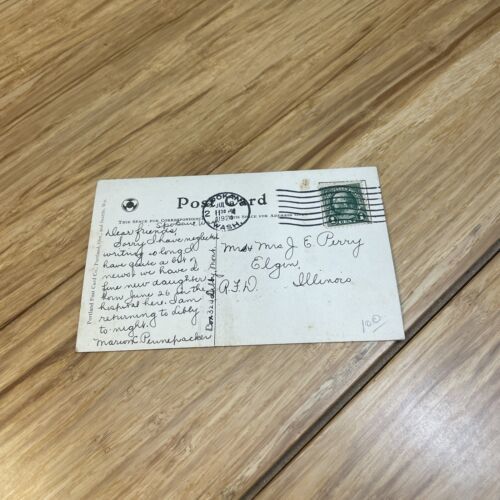 Post Card
THIS SPACE FOR CORRESPONDENCE
THIS SPACE FOR ADDRESS
SPOKANE
WASH.
JUL
2
Portland Post Card Co., Portland, Ore., and Seattle, Wn.
Spokane, W
Dear friends,
Sorry I have neglected
writing so long. I
have quite a bit of
news. We have a
fine new daughter
born June 26 in the
hospital here. I am
returning to Libby
to-night.
Marion Pennepacker
Box 32 Libby, Mont.
Mr & Mrs J E Perry
Elgin
R.F.D. Illinois
100